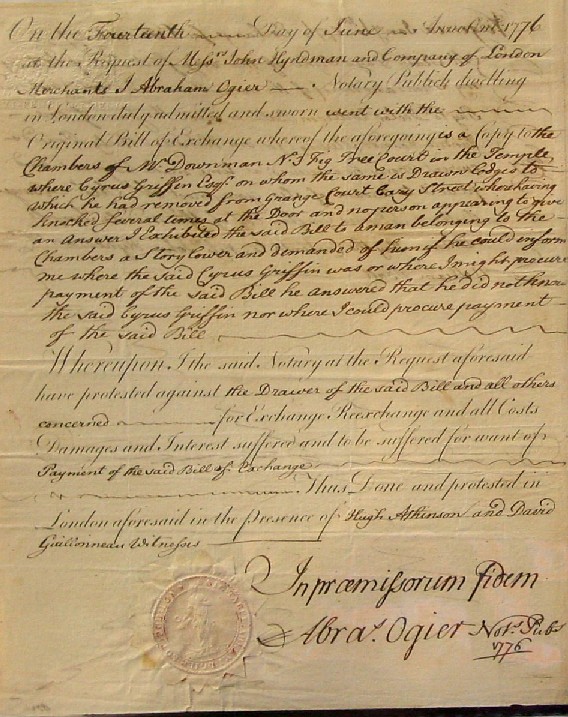 On the Fourteenth Day of June 1776
at the Request of Mess.rs John Hyndman and Company of London
Merchants I Abraham Ogier Notary Publick dwelling
in London duly admitted and sworn went with the
Original Bill of Exchange whereof the aforegoing is a Copy to the
Chambers of Mr Downman No. 3 Fig Tree Court in the Temple,
where Cyrus Griffin Esq.r on whom the same is Drawn lodges to
which he had removed from Grange Court Cary Street where having
knocked several times at the Door and no person appearing to give
an Answer I Exhibited the said Bill to a man belonging to the
Chambers a Story lower and demanded of him if he could inform
me where the Said Cyrus Griffin was or where I might procure
payment of the Said Bill he answered that he did not know
the said Cyrus Griffin nor where I could procure payment
of the said Bill
Whereupon I the said Notary at the Request aforesaid
have protested against the Drawer of the said Bill and all others
concerned for Exchange Reexchange and all Costs
Damages and Interest suffered and to be suffered for want of
Payment of the said Bill of Exchange
Thus Done and protested in
London aforesaid in the Presence of Hugh Atkinson and David
Guillonneau Witnesses
In præmissorum fidem
Abra.s Ogier Not.s Pub.s
1776